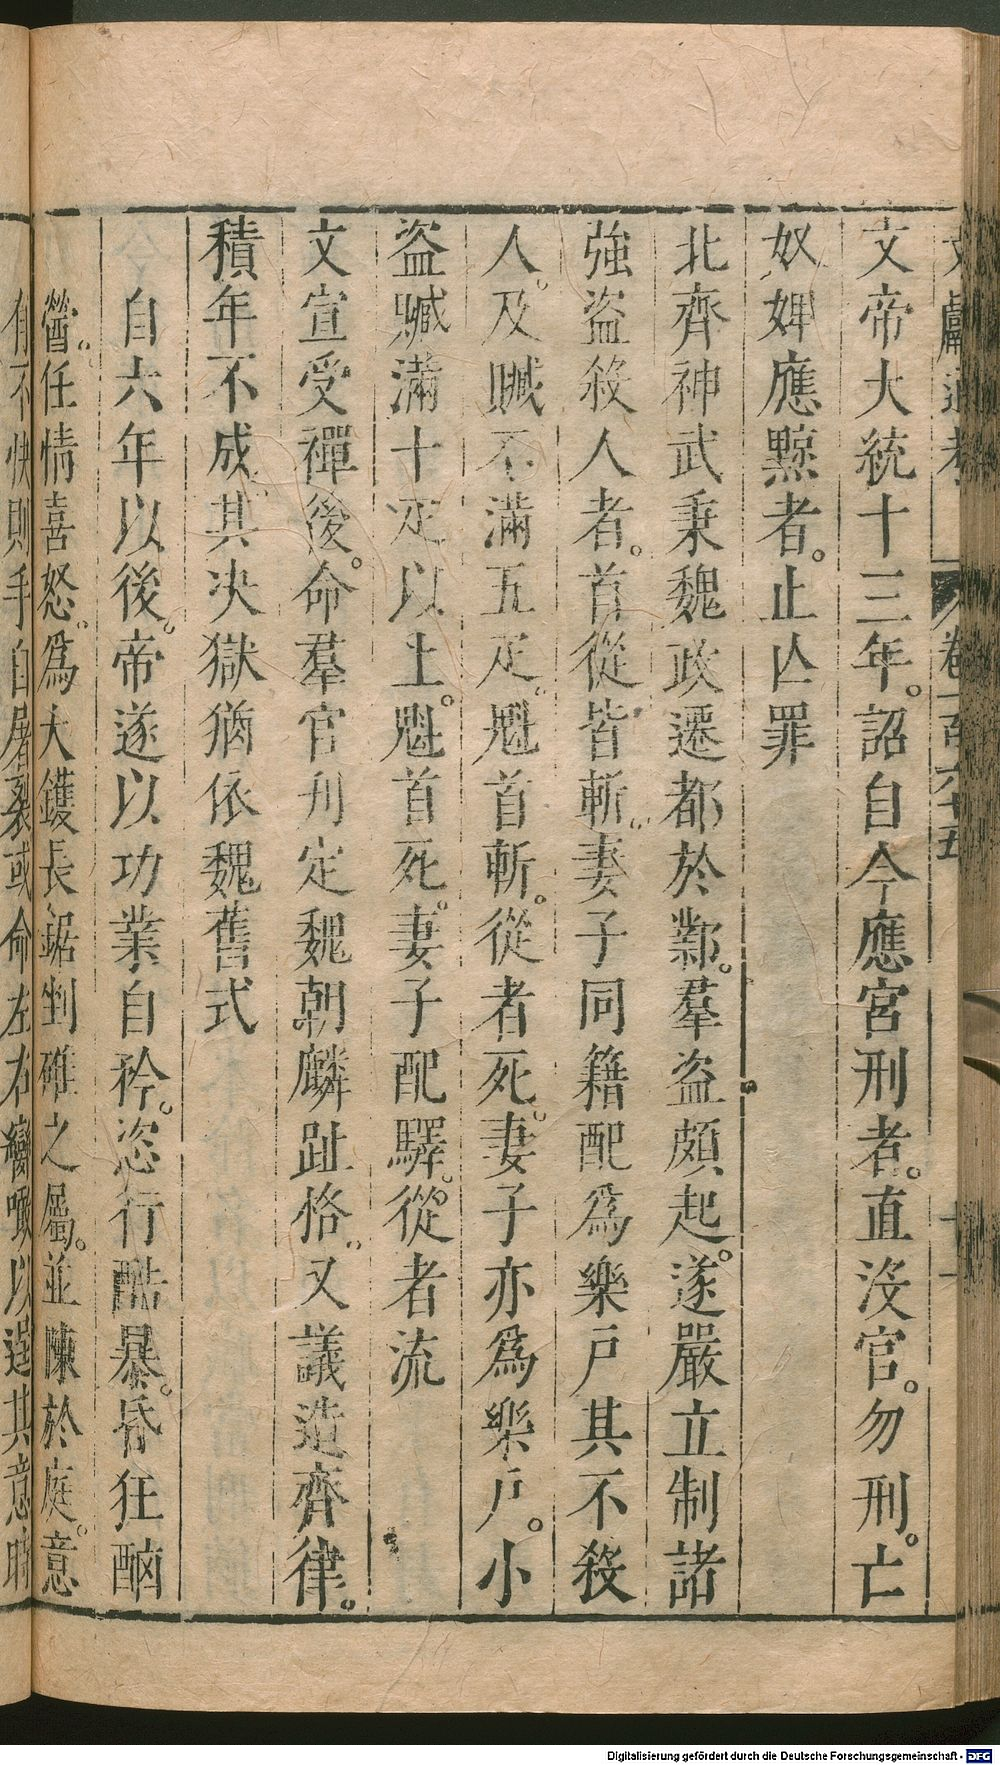 文獻通考 卷一百六十五 十一
文帝大統十三年。詔自今應宮刑者。直沒官。勿刑。亡
奴婢應黥者。止亾罪
北齊神武秉魏政遷都於鄴。羣盜頗起。遂嚴立制諸
強盜殺人者。首從皆斬。妻子同籍配爲樂戶其不殺
人。及贓不滿五疋。魁首斬。從者死。妻子亦爲樂戶。小
盜贓滿十疋以上。魁首死。妻子配驛。從者流
文宣受禪後。命羣官刋定魏朝麟趾格。又議造齊律。
積年不成其決獄猶依魏舊式
自六年以後。帝遂以功業自矜。恣行酷暴。昏狂酗
醟。任情喜怒。爲大鑊長鋸剉碓之屬。並陳於庭。意
有不快則手自屠裂或命左右臠噉以逞其意時
Digitalisierung gefördert durch die Deutsche Forschungsgemeinschaft - DFG